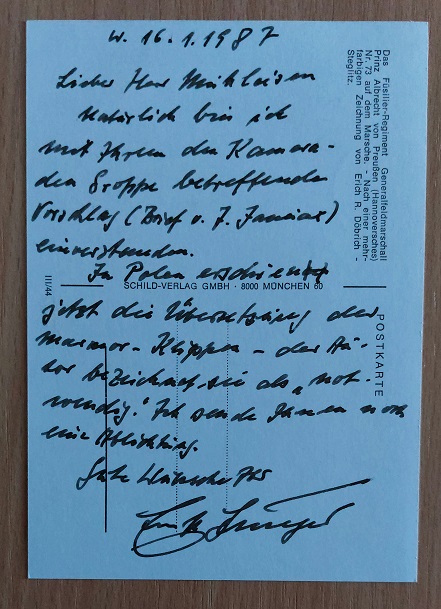 W. 16.1.1987
Lieber Herr
Natürlich bin ich
mit Ihrem den Kamera-
den Groppe betreffenden
Vorschlag (Brief v. 7. Januar)
einverstanden.
In Polen erschien
jetzt die Übersetzung der
Marmor-Klippen - der Au-
tor bezeichnet sie als „not-
wendig." Ich sende Ihnen noch
eine Ablichtung.
Gute Wünsche Ihr
Ernst Jünger
Das Füsilier-Regiment Generalfeldmarschall
Prinz Albrecht von Preußen (Hannoversches)
Nr. 73 auf dem Marsche. - Nach einer mehr-
farbigen Zeichnung von Erich R. Döbrich -
Steglitz.
SCHILD-VERLAG GMBH · 8000 MÜNCHEN 60
III/44
POSTKARTE